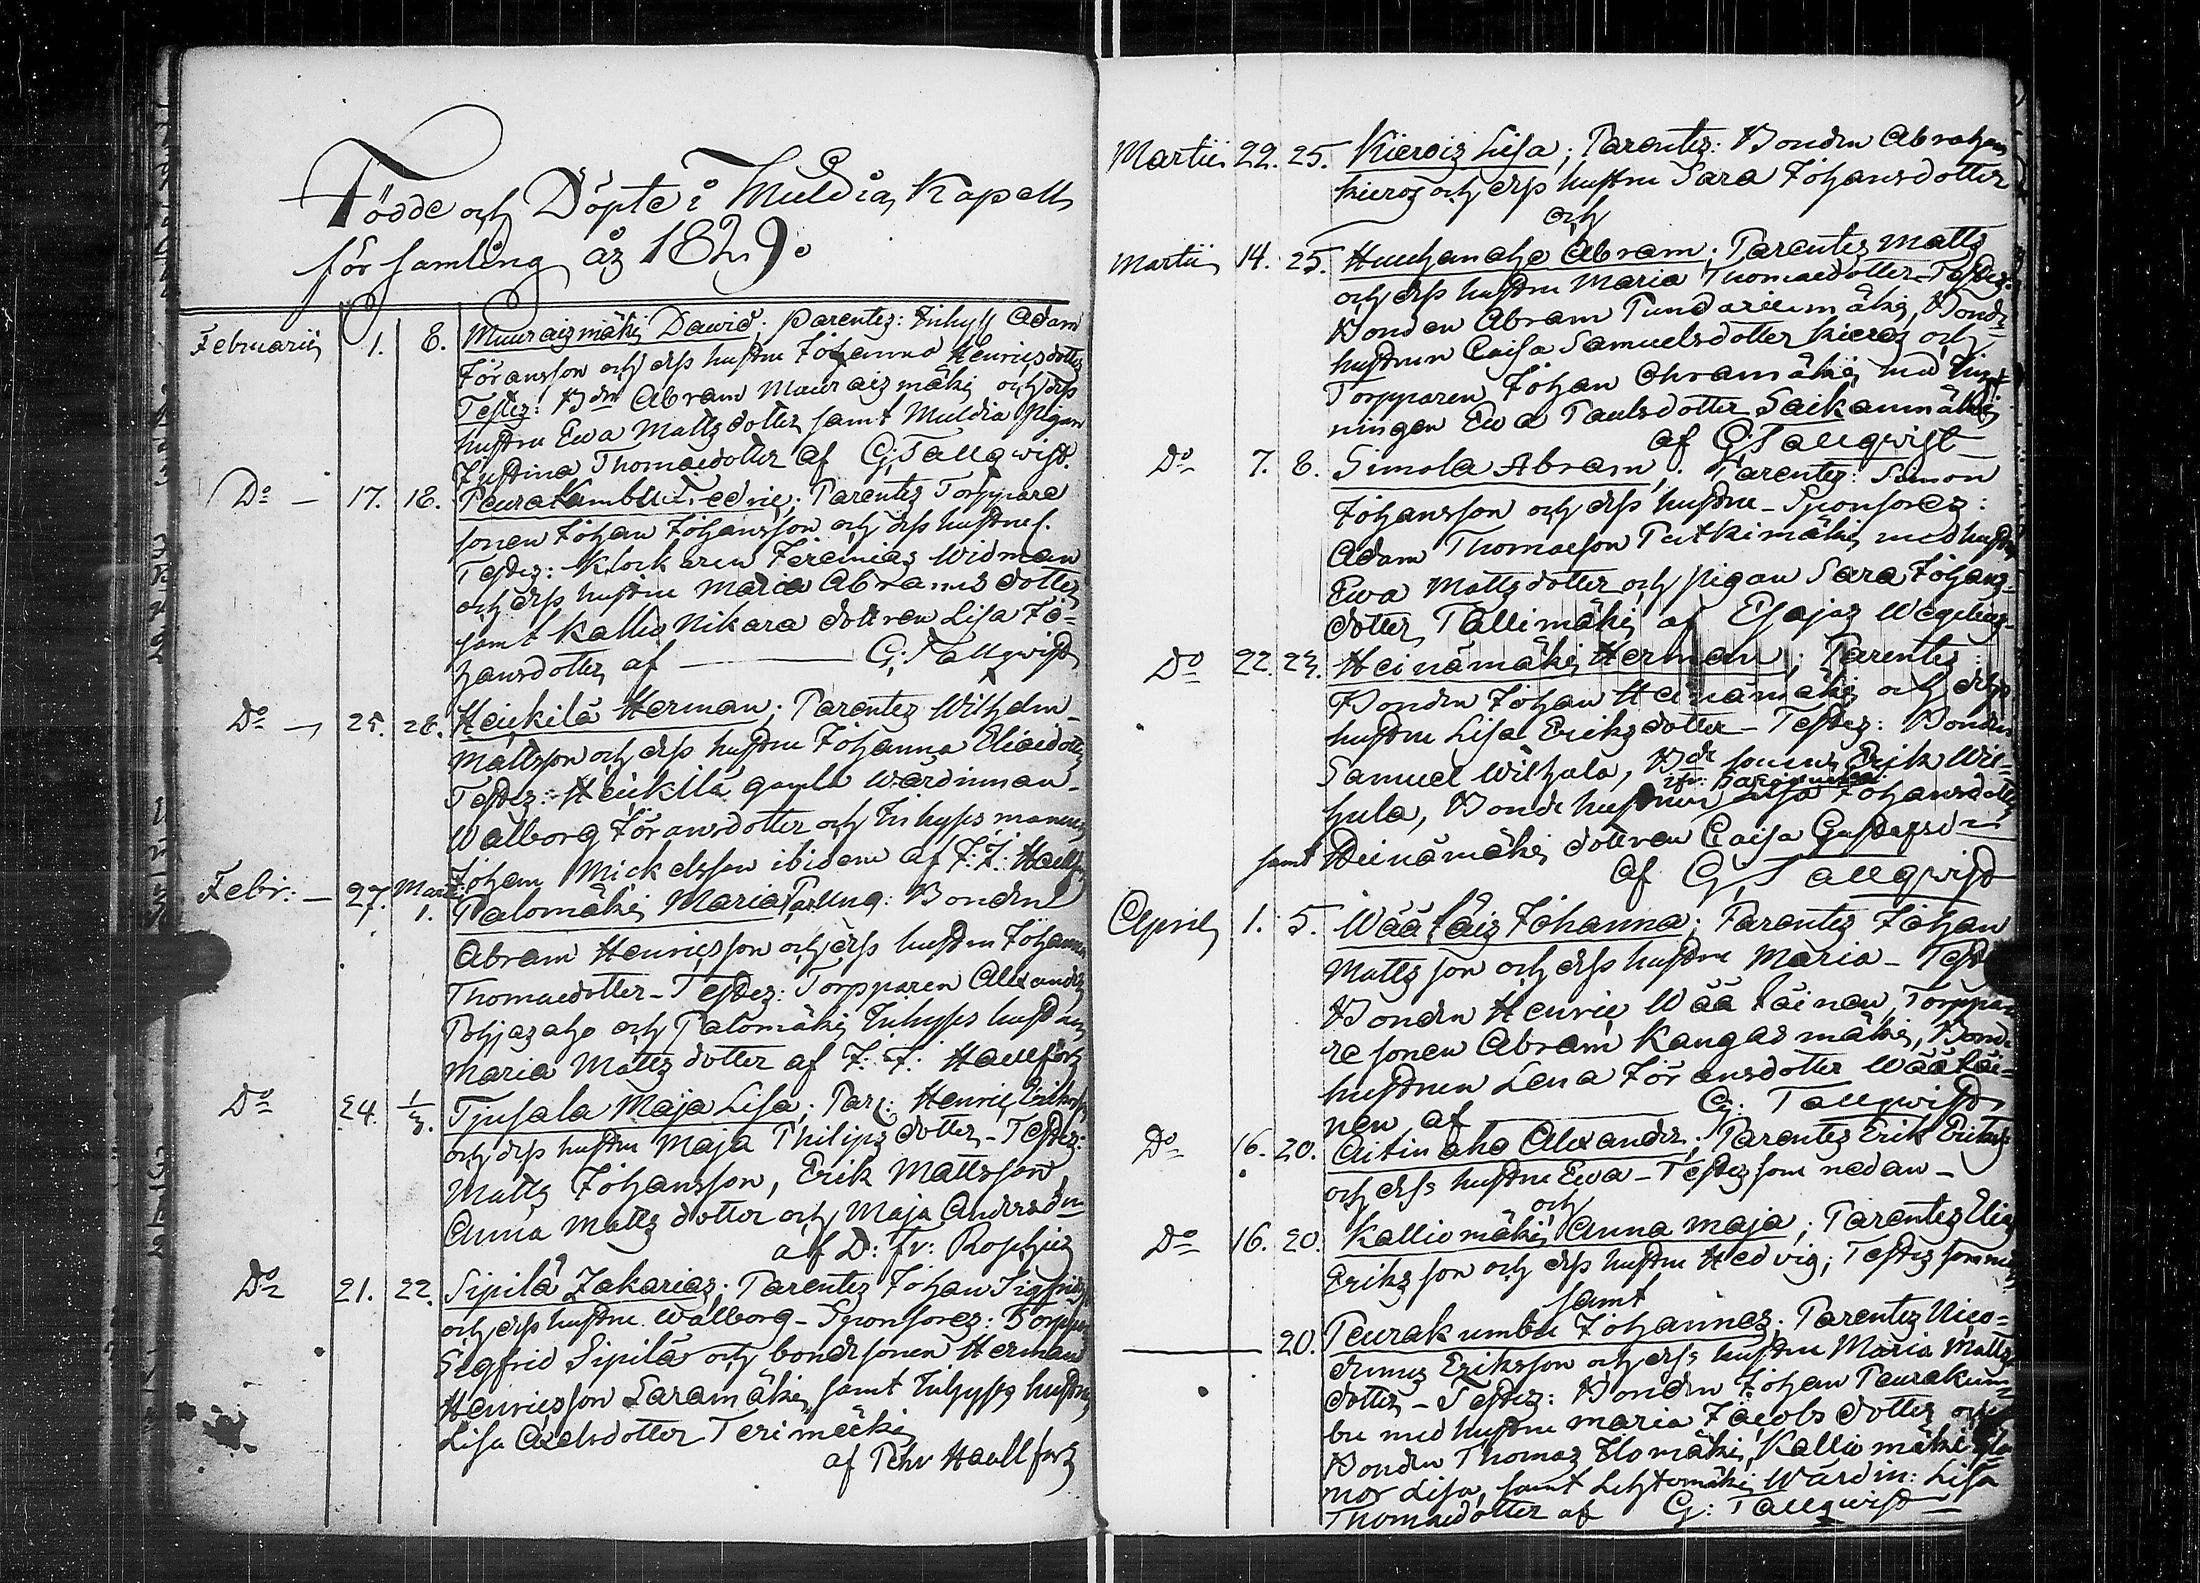 Födde och Döpte i Muldia Kapells
församling år 1829.
Februarii 1. 8. Muuraismäki Dawid; Parentes: Inhys Adam
Jöransson och dess hustru Johanna Henricsdotter
Testes: Bdn Abram Muuraismäki och dess
hustru Ewa Mattsdotter samt Muldia Pigan
Justina Thomaedotter af G: Tallqwist.
Do — 17. 18. Peurakumbu Fredric; Parentes Torppare
sonen Johan Johansson och dess hustru
Testes: Klockaren Jeremias Widman
och dess hustru Maria Abramsdotter
samt Kallio Nikara dottren Lisa Jo=
hansdotter af — G: Tallqwist
Do — 25. 28. Heickilä Herman; Parentes Wilhelm
Mattsson och dess hustru Johanna Eliaedotter
Testes: Heickilä gamla Wärdinnan
Walborg Jöransdotter och Inhyses mannen
Johan Mickelsson ibidem af J: J: Hællfors
Febr: — 27. Mart: 1. Palomäki Maria; Par: Bonden
Abram Henricsson och dess hustru Johanna
Thomaedotter – Testes: Torpparen Alexander
Pohjasaho och Palomäki Inhyses hustrun
Maria Mattsdotter af J. J. Hællfors
Do 24. 1/3. Tjusala Maja Lisa; Par: Henric Erikss:
och dess hustru Maja Philipsdotter – Testes:
Matts Johansson, Erik Mattsson,
Anna Mattsdotter och Maja Andersdr
af D: fr: Roschier
Do 21. 22. Sipilä Zakarias; Parentes Johan Sigfrids
och dess hustru Walborg – Sponsores: Torppar
Sigfrid Sipilä och bondesonen Herman
Henricsson Saramäki samt Inhyses hustru
Lisa Axelsdotter Terimäki
af Pehr Haellfors
Martii 22. 25. Kierois Lisa; Parentes: Bonden Abraham
Kieros och dess hustru Sara Johansdotter
och
Martii 14. 25. Huuhanaho Abram; Parentes Matts
och dess hustru Maria Thomaedotter – Testes:
Bonden Abram Pundarismäki, Bonde
hustrun Caisa Samuelsdotter Kieros och
Torpparen Johan Ohramäki med
ningen Ewa Paulsdotter Saikanmäki
af G: Tallqwist
Do 7. 8. Simola Abram; Parentes: Simon
Johansson och dess hustru – Sponsores:
Adam Thomaeson Putkimäki med hustru
Ewa Mattsdotter och Pigan Sara Johans=
dotter Tallimäki af Esajas Wegelius
Do 22. 23. Heinämäki Herman; Parentes:
Bonden Johan Heinämäki och dess
hustru Lisa Eriksdotter – Testes: Bonden
Samuel Wilhula, Bde sonen Erik Wil=
hula, Bonde hustrun Johansdotter
samt Heinämäki dottren Caisa Gustafsdr
af G: Tallqwist
April 1. 5. Wäätäis Johanna; Parentes Johan
Mattsson och dess hustru Maria – Testes
Bonden Henric Wäätäinen, Torppa=
re sonen Abram Kangasmäki, Bonde
hustrun Lena Jöransdotter Wäätäi=
nen af — G: Tallqwist
Do 16. 20. Aitinaho Alexander; Parentes Erik Eriksson
och dess hustru Ewa – Testes som nedan –
och
Do 16. 20. Kalliomäki Anna Maja; Parentes Elias
Eriksson och dess hustru Hedvig; Testes som
samt
— 20. Peurakumbu Johannes; Parentes Nico=
demus Eriksson och dess hustru Maria Matts
dotter – Testes: Bonden Johan Peurakum=
bu med hustru Maria Jacobsdotter och
Bonden Thomas Ilomäki, Kalliomäki
mor Lisa, samt Lehtomäki Wärdin: Lisa
Thomaedotter af G: Tallqwist